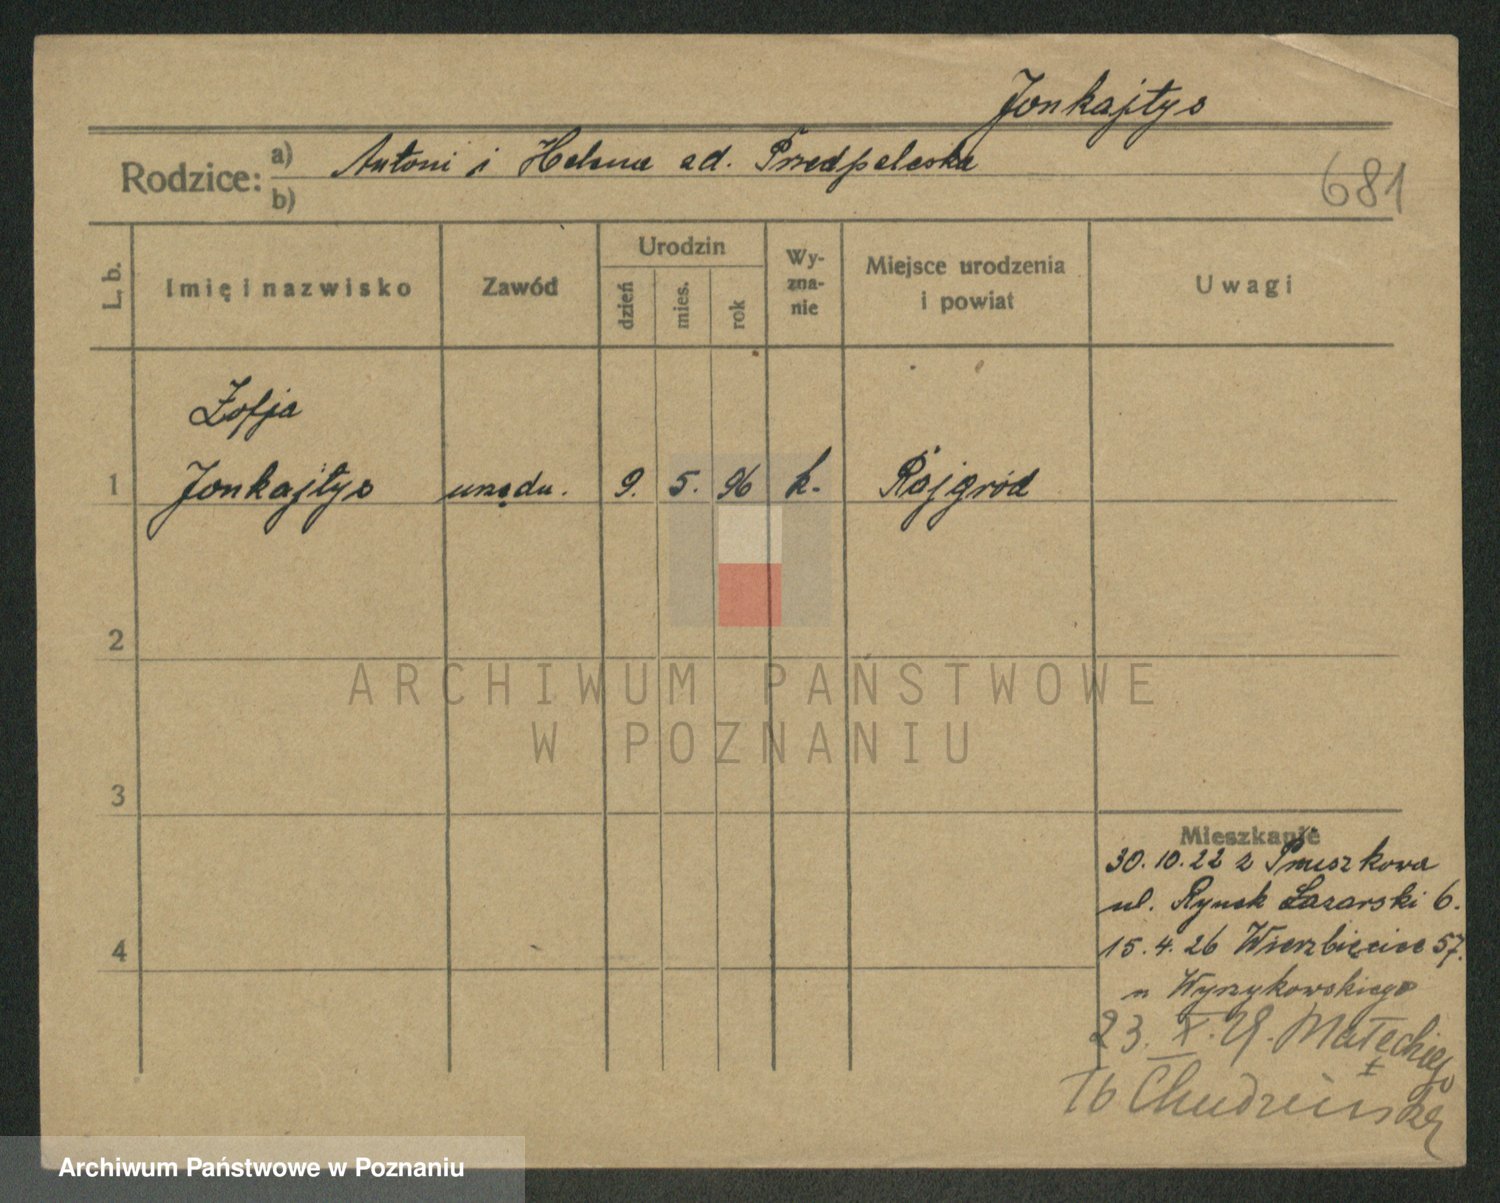 Jonkajtys
Rodzice: a) Antoni i Helena zd. Przedpełska
b)
681
L. b. Imię i nazwisko Zawód Urodzin dzień mies. rok Wyznanie Miejsce urodzenia i powiat Uwagi
Zofja
1 Jonkajtys urzędn. 9. 5. 96 k. Rajgród
2
ARCHIWUM PAŃSTWOWE
W POZNANIU
3
4
Mieszkanie
30.10.22 z Pruszkowa
ul. Rynek Łazarski 6.
15.4.26 Wierzbięcice 57.
u Wyszykowskiego
23. X. 29. Małeckiego
16
Archiwum Państwowe w Poznaniu